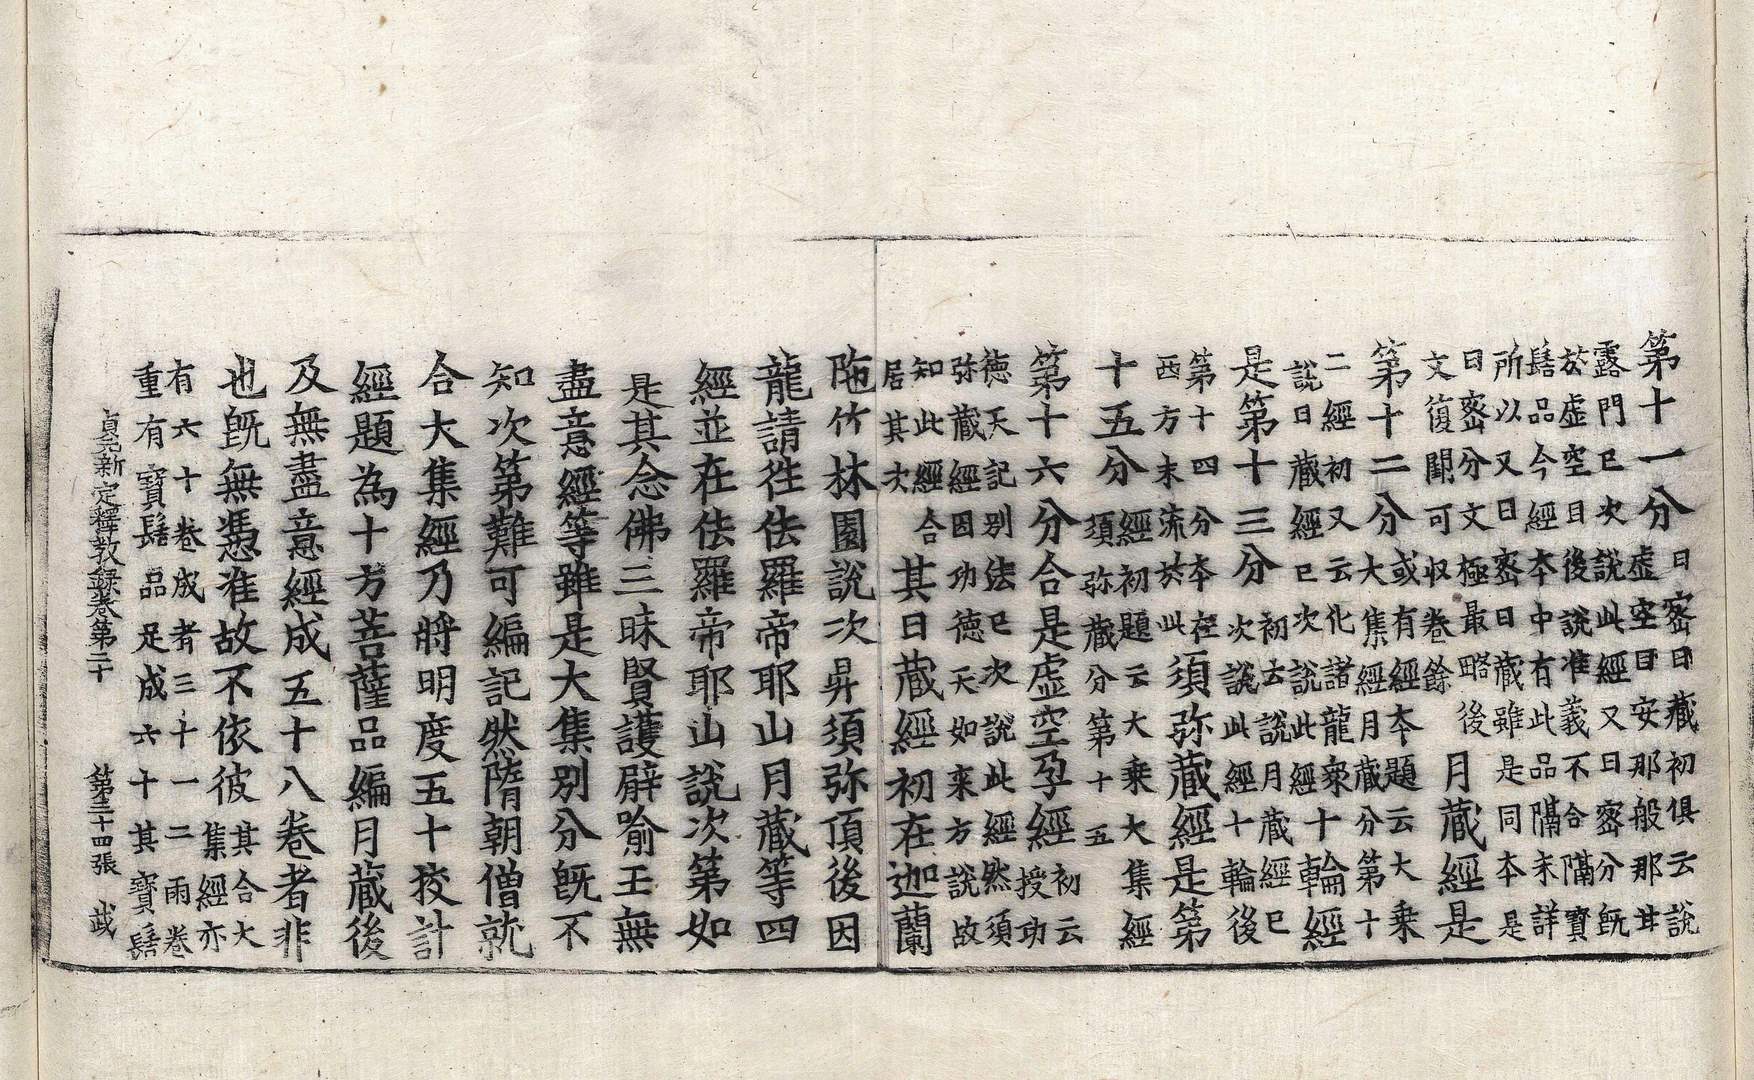 第十一分日密日藏初俱云說
虛空目安那般那甘
露門已次說此經又曰密分既
於虛空目後說准義不合隔寶
髻品今經本中有此品隔未詳
所以又曰密曰藏雖是同本是
曰密分文極最略後
文復闕可収卷餘月藏經是
第十二分或有經本題云大乘
大集經月藏分第十
二經初又云化諸龍衆
說日藏經已次說此經十輪經
是第十三分初去說月藏經已
次說此經十輪後
第十四分本在
西方未流於此須弥藏經是第
十五分經初題云大乘大集經
須弥藏分第十五
第十六分合是虛空孕經初云
授功
德天記別法已次說此經然須
弥藏經因功德天如来方說故
知此經合
居其次其日藏經初在迦蘭
陁竹林園說次昇須弥頂後因
龍請徃佉羅帝耶山月藏等四
經並在佉羅帝耶山說次第如
是其念佛三昧賢護譬喻王無
盡意經等雖是大集別分旣不
知次第難可編記然隋朝僧就
合大集經乃將明度五十挍計
經題為十方菩薩品編月藏後
及無盡意經成五十八卷者非
也旣無憑准故不依彼其合大
集經亦
有六十卷成者三十一二兩卷
重有寶髻品足成六十其寶髻
貞元新定釋教録卷第二十　第三十四張　武